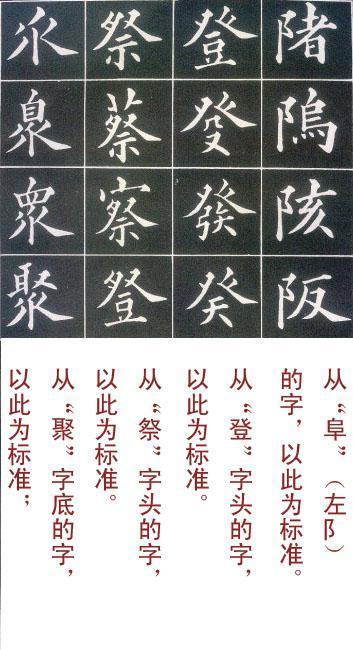 陼隖陔阪
登癹發癸
祭蔡察登
乑臮眾聚
从“阜”（左阝）
的字，以此为标准。
从“登”字头的字，
以此为标准。
从“祭”字头的字，
以此为标准。
从“聚”字底的字，
以此为标准；